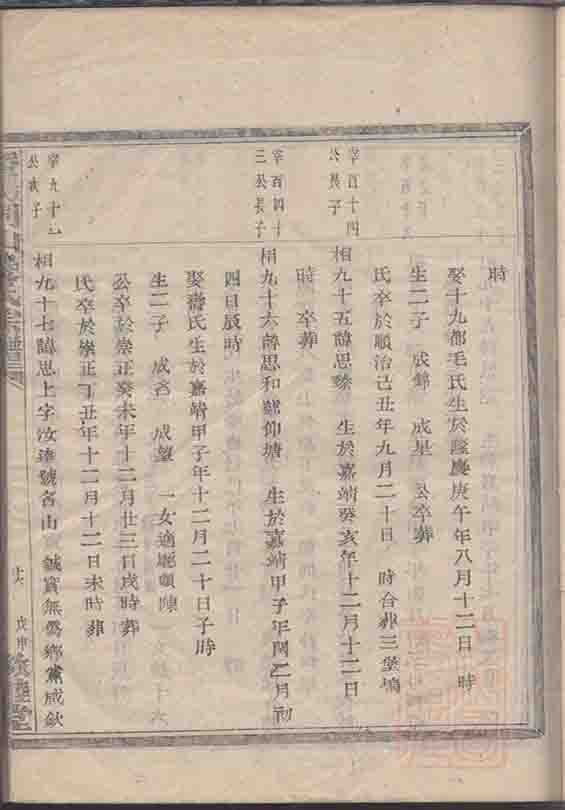 時
娶十九都毛氏生於隆慶庚午年八月十二日 時
生二子 成錦 成星 公卒葬
氏卒於順治己丑年九月二十日 時合葬三堡塢
宰百十四
公長子
相九十五諱思 生於嘉靖癸亥年十二月十二日
時 卒葬
宰百四十
三公長子
相九十六諱思和號仰塘 生於嘉靖甲子年閏二月初
四日辰時
娶 氏生於嘉靖甲子年十二月二十日子時
生二子 成名 成 一女適
公卒於崇正癸未年十二月廿三日戌時葬
氏卒於崇正丁丑年十二月十二日未時葬
宰九十二
公次子
相九十七諱思上字汝達號 山 誠實無僞鄉黨咸欽
戊申